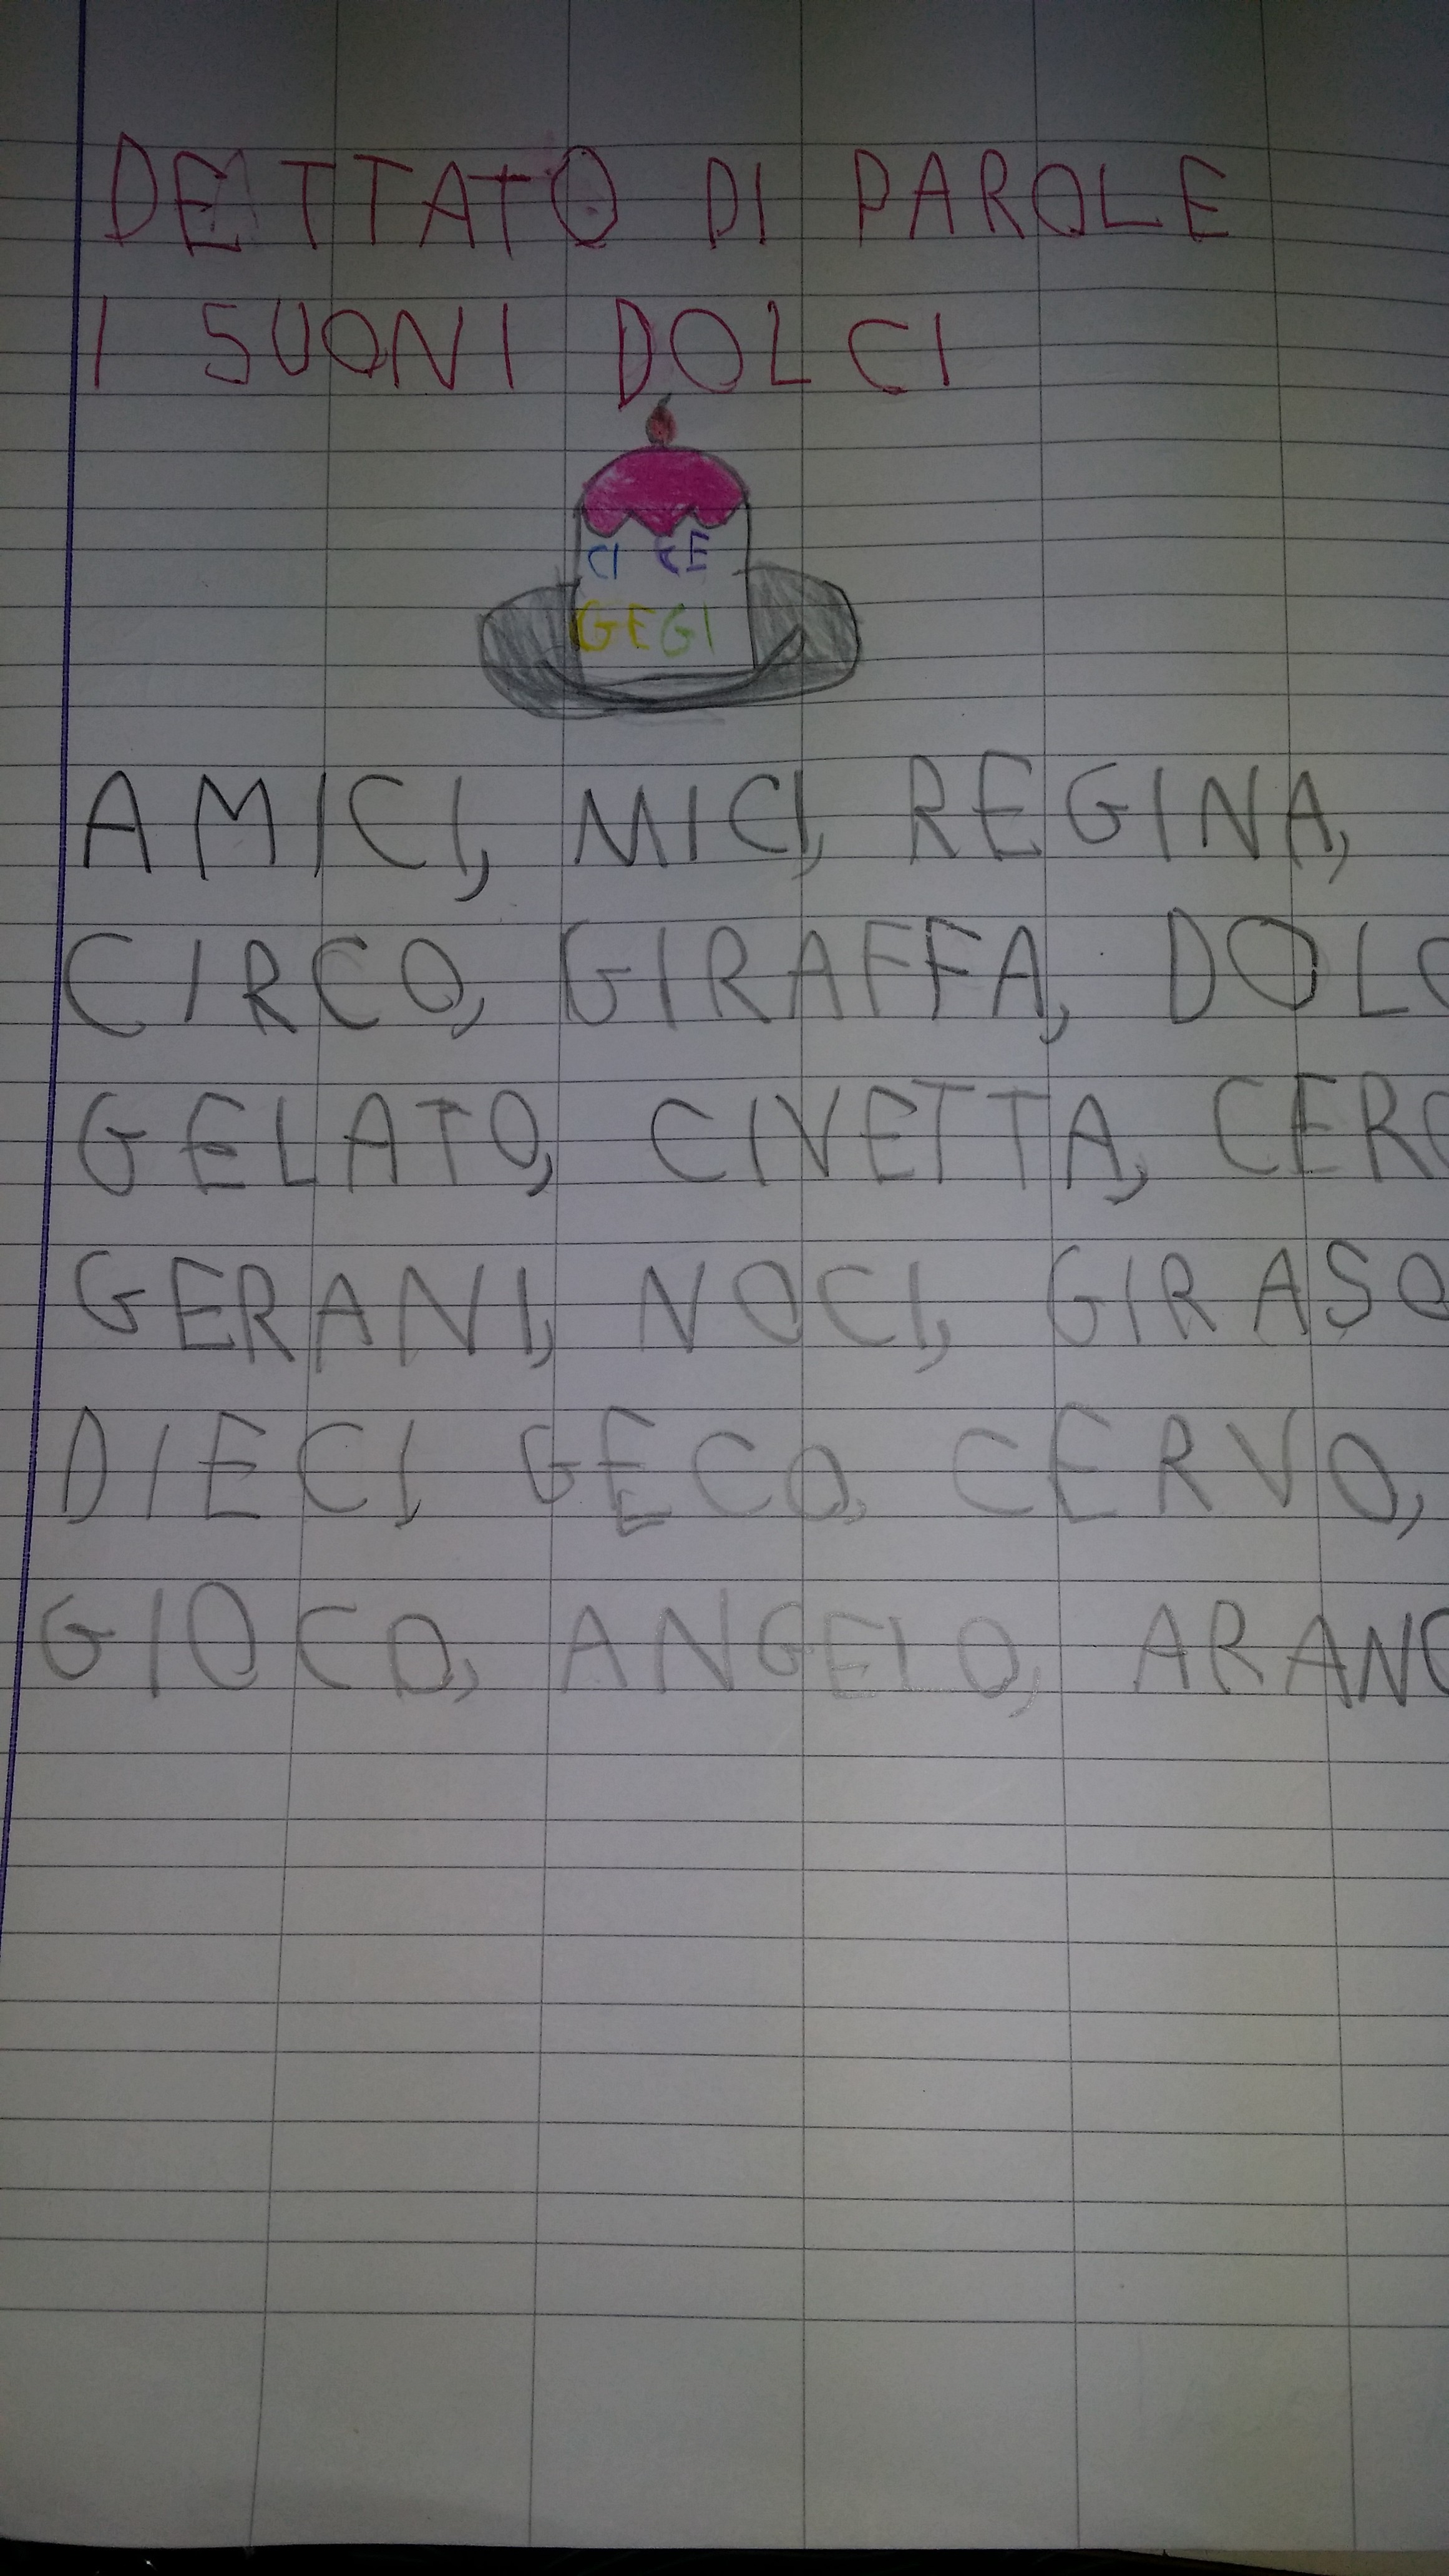 DETTATO DI PAROLE
I SUONI DOLCI
CI CE
GE GI
AMICI, MICI, REGINA,
CIRCO, GIRAFFA, DOLC
GELATO, CIVETTA, CERC
GERANI, NOCI, GIRASO
DIECI, GECO, CERVO,
GIOCO, ANGELO, ARANC